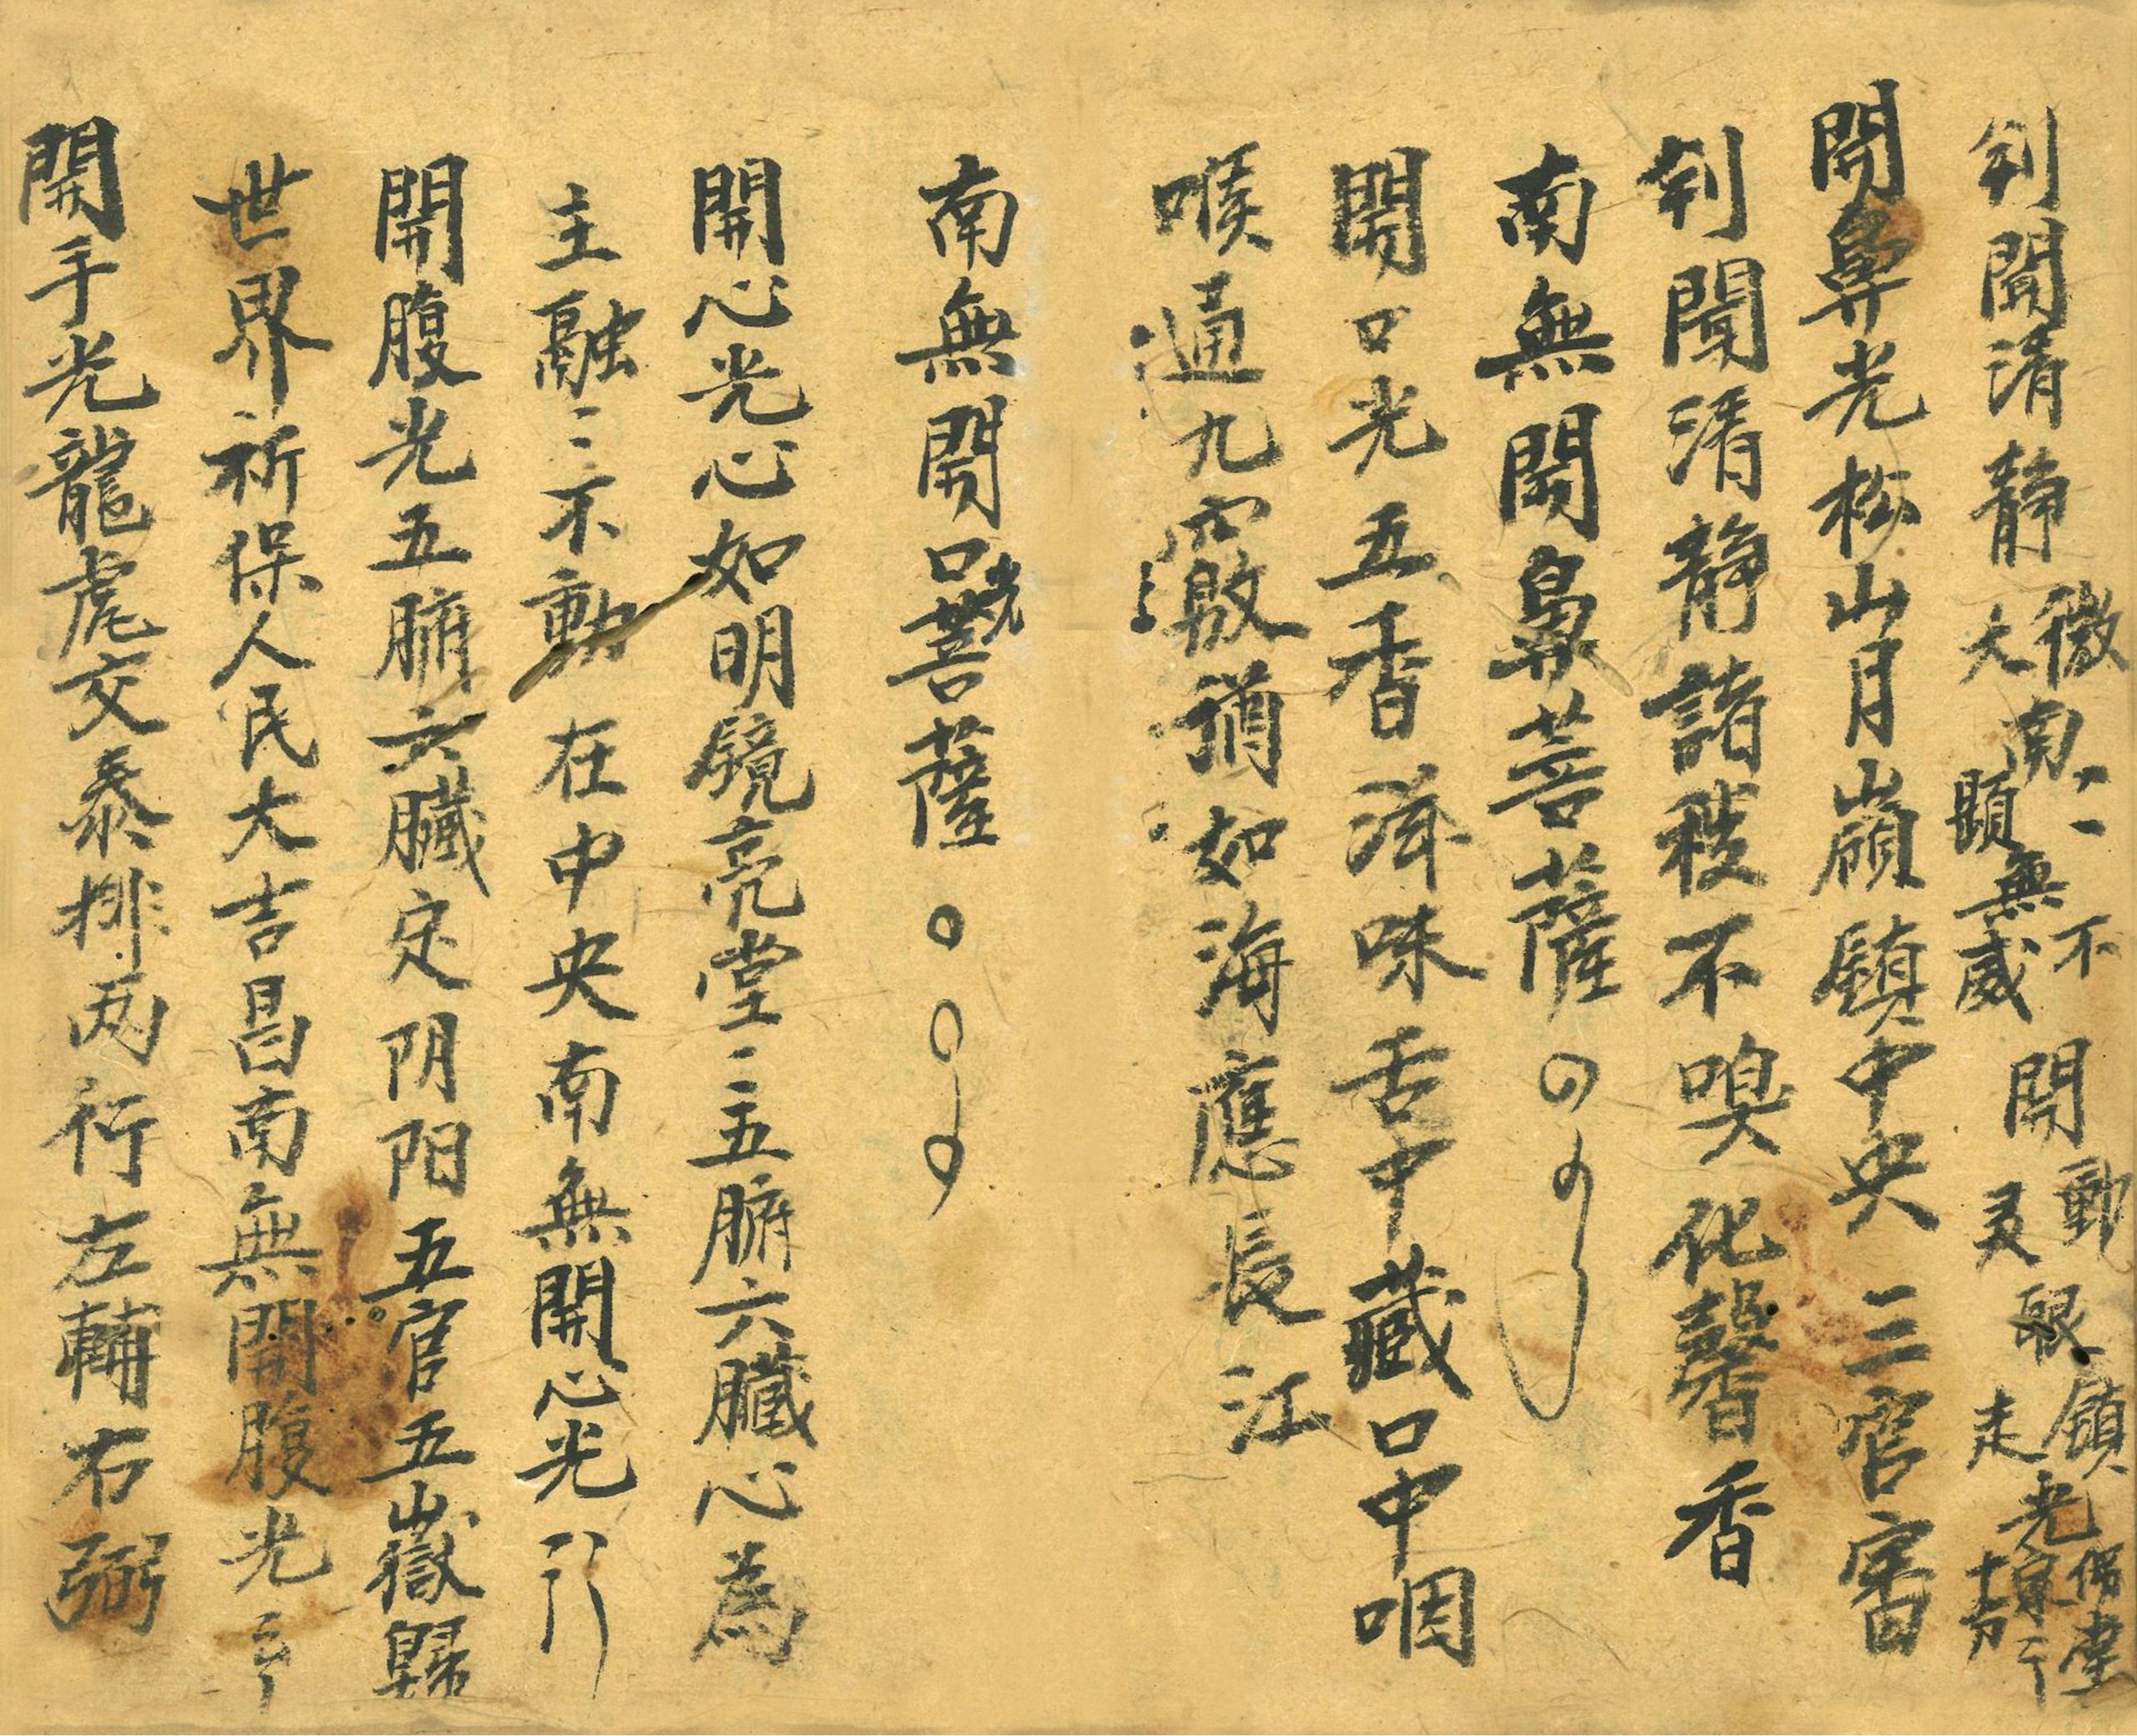 判聞清静 微二不動鎮傍壇
大顕威灵走十方
南無開眼光菩薩
開鼻光松山月巔鎮中央三官
判聞清静諸穢不嗅化馨香
南無開鼻菩薩
開口光五香海味舌中藏口中咽
喉通九竅猶如海應長江
南無開口光菩薩
開心光心如明鏡亮堂〻五腑六臟心為
主融〻不動在中央南無開心光
開腹光五腑六臟定阴阳五官五嶽歸
世界祈保人民大吉昌南無開腹光
開手光龍虎交泰排两行左輔右弼